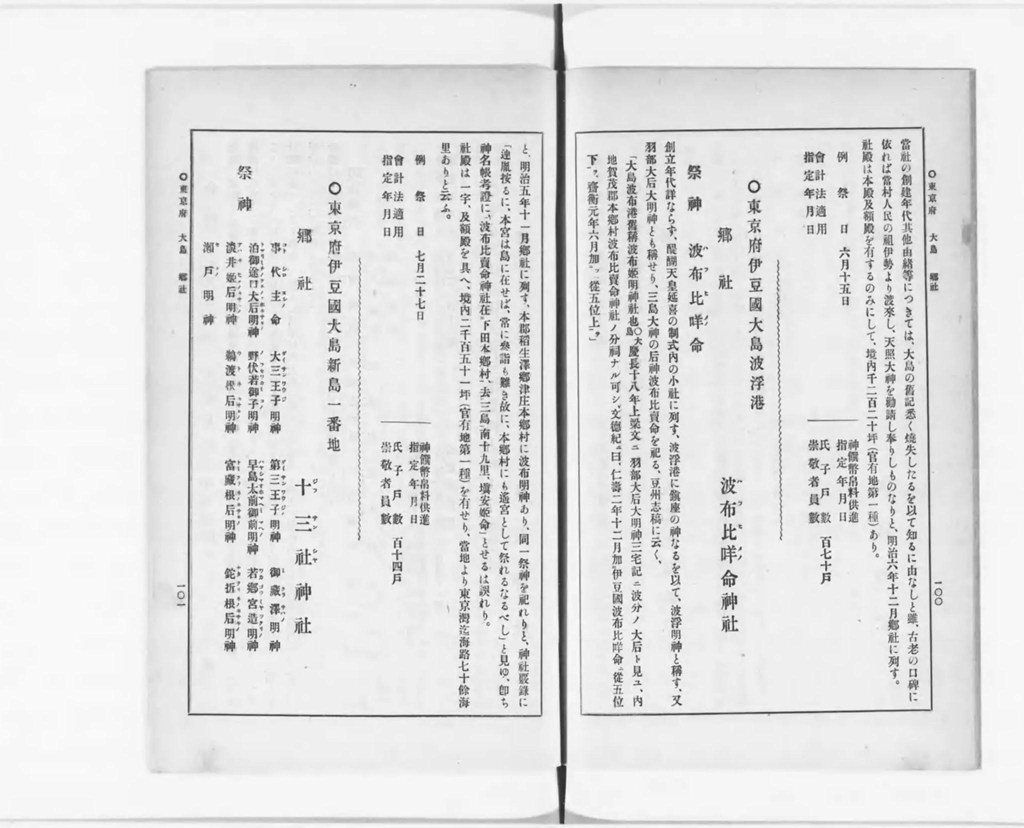 ○東京府 大島 郷社
一〇〇
當社の創建年代其他由緖等につきては、大島の舊記悉く燒失したるを以て知るに由なしと雖、古老の口碑に
依れば當村人民の祖伊勢より渡來し、天照大神を勸請し奉りしものなりと、明治六年十二月鄕社に列す。
社殿は本殿及額殿を有するのみにして、境內千二百二十坪(官有地第一種)あり。
例祭日 六月十五日
神饌幣帛料供進
指定年月日
會計法適用
指定年月日
氏子戶數 百七十戶
崇敬者員數
○東京府伊豆國大島波浮港
鄕社 波布比咩命神社
祭神 波布比咩命
創立年代詳ならず、醍醐天皇延喜の制式內の小社に列す、波浮港に鎭座の神なるを以て、波浮明神と稱す、又
羽部大后大明神とも稱せり、三島大神の后神波布比賣命を祀る、豆州志稿に云く、
「大島波布港舊稱波布姬明神社也○大島慶長十八年上梁文ニ羽部大后大明神三宅記ニ波分ノ大后ト見ユ、內
地賀茂郡本鄕村波布比賣命神社ノ分祠ナル可シ、文德紀ニ曰、仁壽二年十二月加伊豆國波布比咩命從五位
下ヲ、齋衡元年六月加フ從五位上ヲ」
○東京府 大島 鄕社
一〇一
と、明治五年十一月鄕社に列す、本郡稻生澤鄕津庄本鄕村に波布明神あり、同一祭神を祀れりと、神社覈錄に
「連胤按るに、本宮は島に在せば、常に參詣も難き故に、本鄕村にも遙宮として祭れるなるべし」と見ゆ、卽ち
神名帳考證に、「波布比賣命神社在下田本鄕村、去三島南十九里、埴安姬命」とせるは誤れり。
社殿は一字、及額殿を具へ、境內二千百五十一坪(官有地第一種)を有せり、當地より東京灣迄海路七十餘海
里ありと云ふ。
例祭日 七月二十七日
神饌幣帛料供進
指定年月日
會計法適用
指定年月日
氏子戶數 百十四戶
崇敬者員數
○東京府伊豆國大島新島一番地
鄕社 十三社神社
祭神
事代主命 大三王子明神 第三王子明神 御藏澤明神
泊御途口大后明神 野伏着御子明神 早島太前御前明神 若鄕宮造明神
浪井姬后明神 鵜渡根后明神 富藏根后明神 鉈折根后明神
瀨戶明神